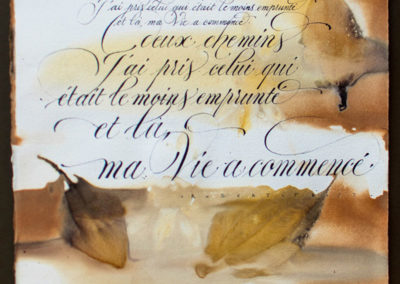 J'ai pris celui qui était le moins emprunté
et là, ma Vie a commencé
deux chemins
J'ai pris celui qui
était le moins emprunté
et là,
ma Vie a commencé